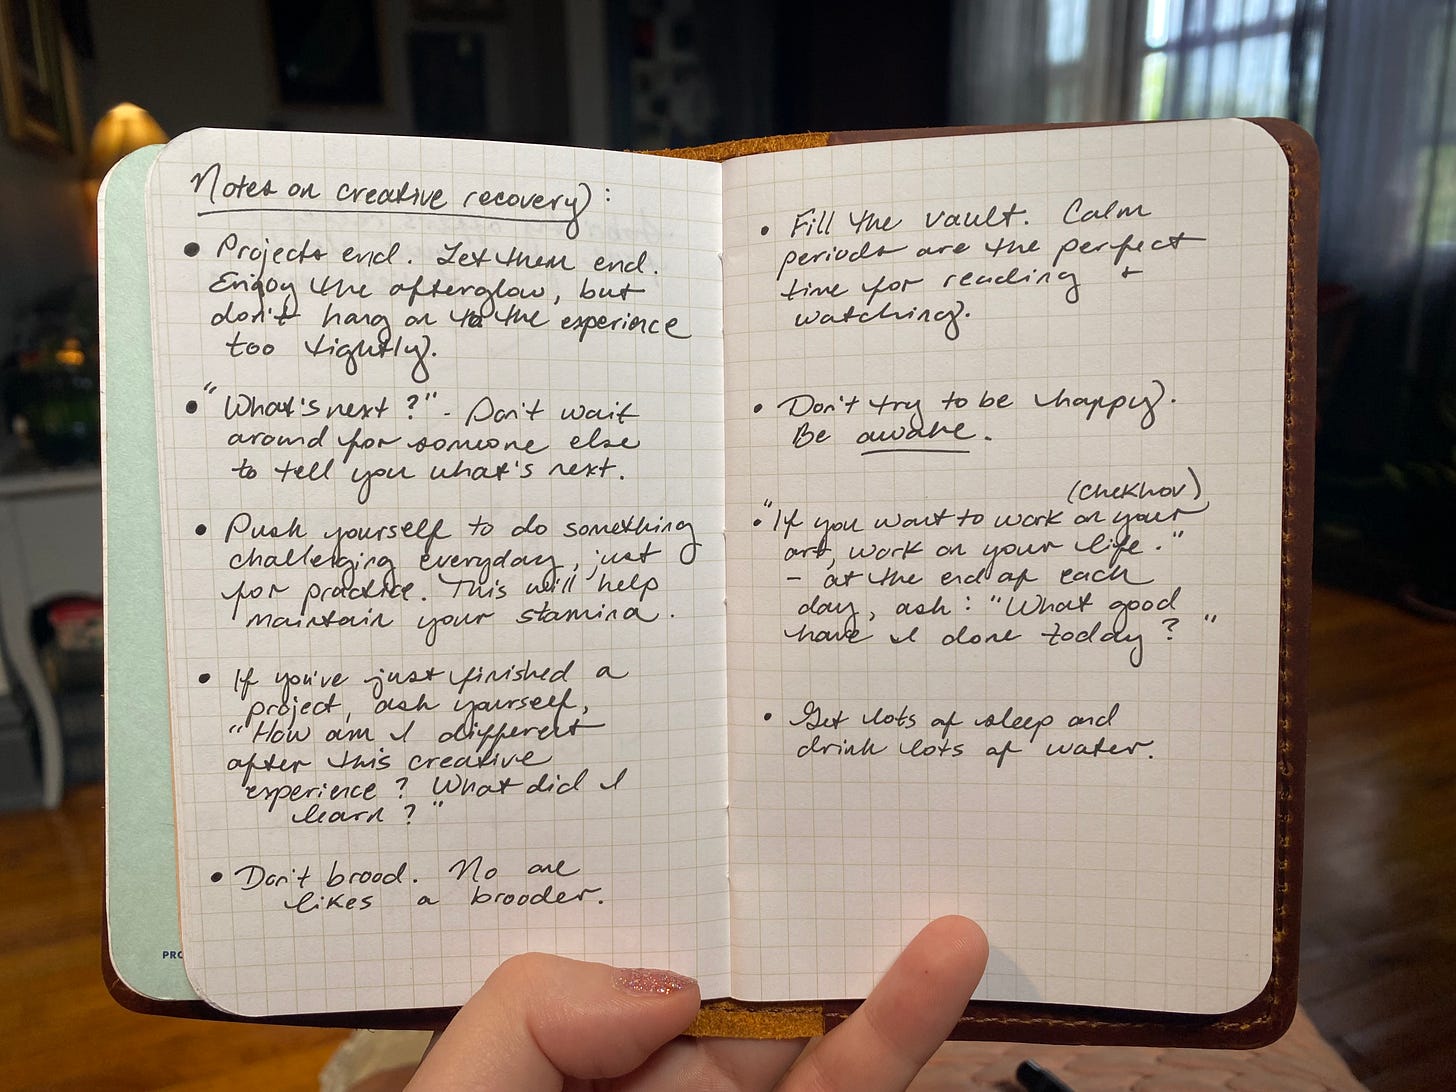 Notes on creative recovery:
• Projects end. Let them end.
Enjoy the afterglow, but
don't hang on to the experience
too tightly.
• "What's next?" - Don't wait
around for someone else
to tell you what's next.
• Push yourself to do something
challenging everyday, just
for practice. This will help
maintain your stamina.
• If you've just finished a
project, ask yourself,
"How am I different
after this creative
experience? What did I
learn?"
• Don't brood. No one
likes a brooder.
PRO
• Fill the vault. Calm
periods are the perfect
time for reading +
watching.
• Don't try to be happy.
Be awake.
(Chekhov)
• "If you want to work on your
art, work on your life."
- at the end of each
day, ask: "What good
have I done today?"
• Get lots of sleep and
drink lots of water.